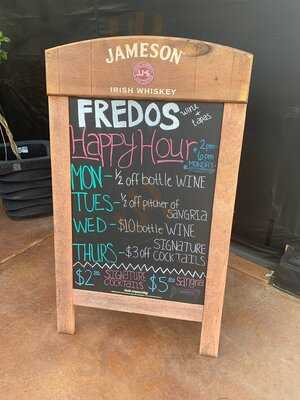 JAMESON
IRISH WHISKEY
FREDOS wine + tapas
Happy Hour 2pm
6pm
MON - ½ off bottle WINE
TUES - ½ off pitcher of
SANGRIA
WED - $10 bottle WINE
THURS - $3 off SIGNATURE
COCKTAILS
SIGNATURE
COCKTAILS
Sangria